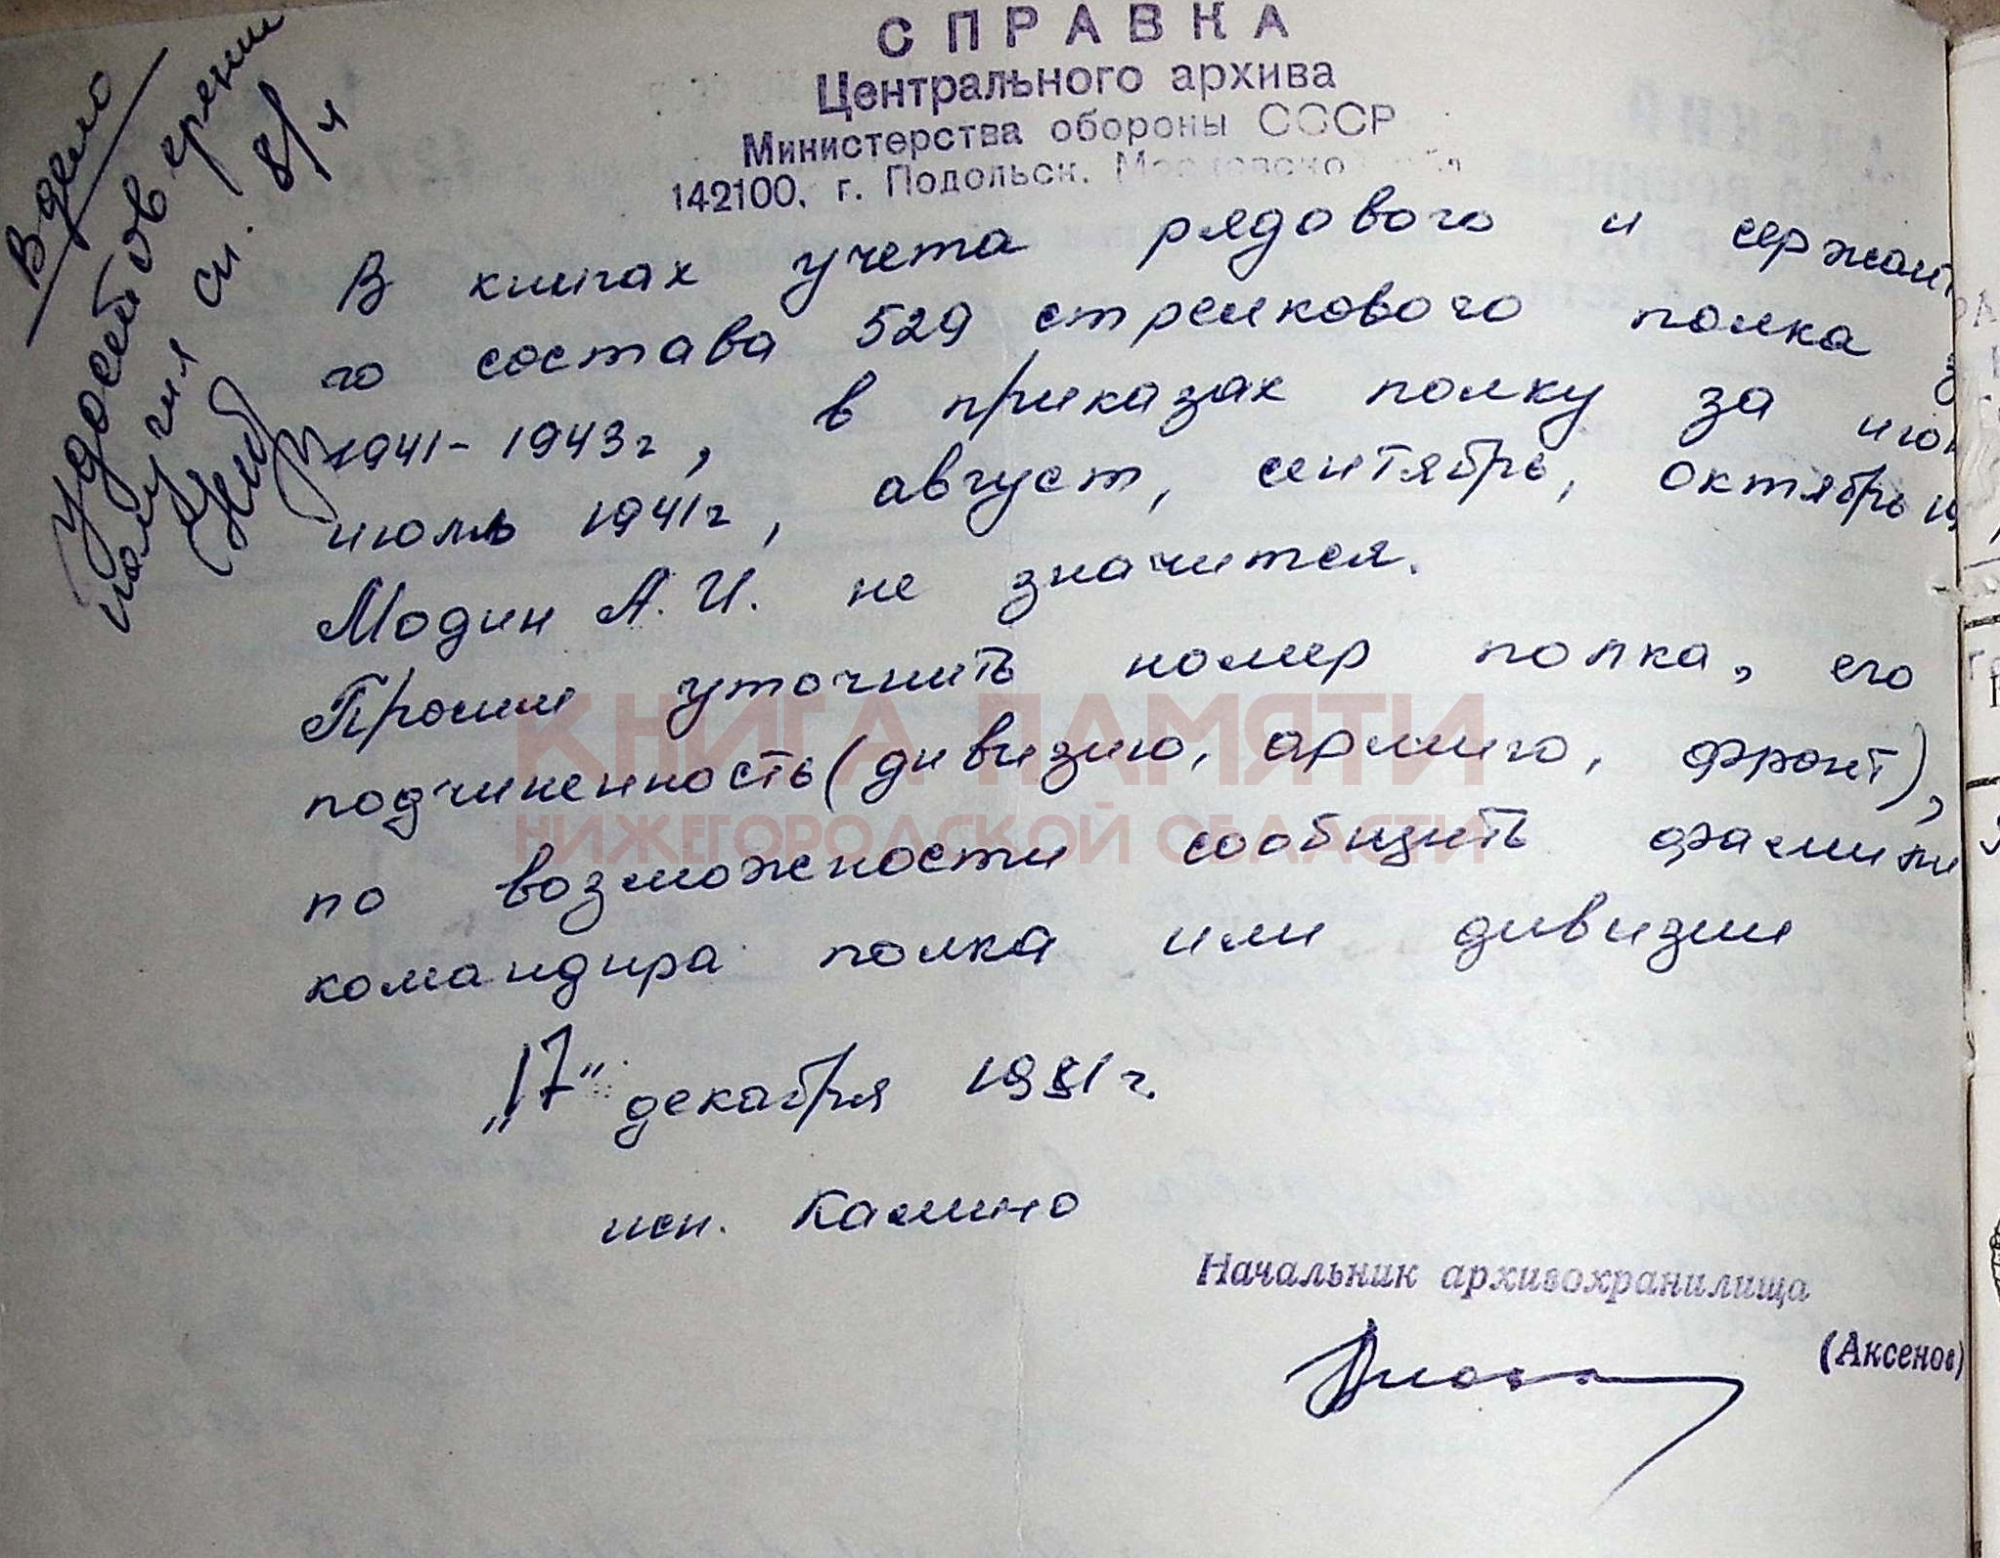 СПРАВКА
Центрального архива
Министерства обороны СССР
142100, г. Подольск,
В книгах учета рядового и сержант
го состава 529 стрелкового полка з
1941-1943г, в приказах полку за июн
июль 1941г, август, сентябрь, октябрь 19
Модин А.И. не значится.
Просим уточнить номер полка, его
подчиненность (дивизию, армию, фронт),
по возможности сообщить фамили
командира полка или дивизии
"17" декабря 1981г.
исп. Камино
Начальник архивохранилища
(Аксенов)
В дело
Удостоверение
получил
КНИГА ПАМЯТИ
НИЖЕГОРОДСКОЙ ОБЛАСТИ